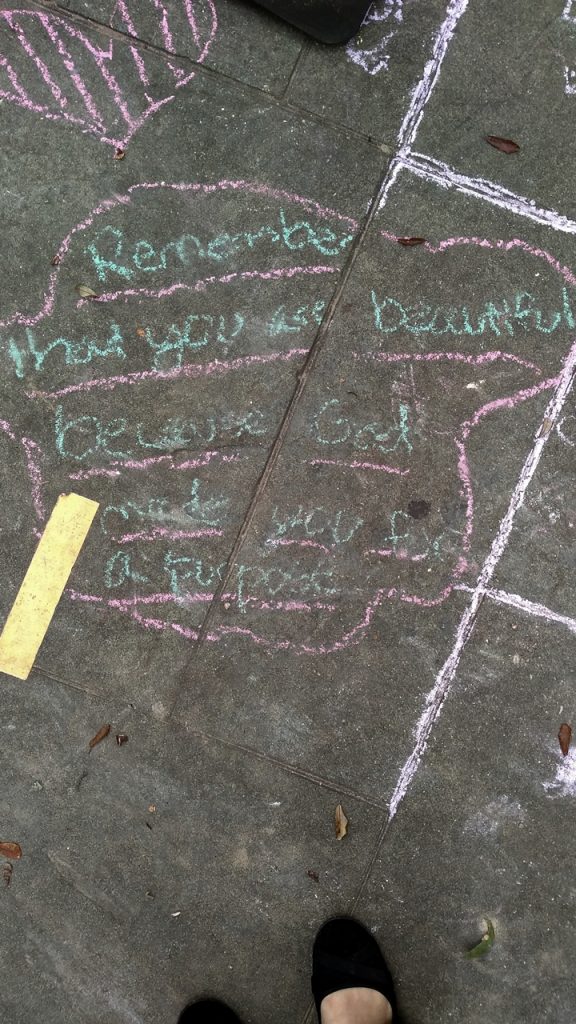 Remember
that you are beautiful
because God
made you for
a purpose